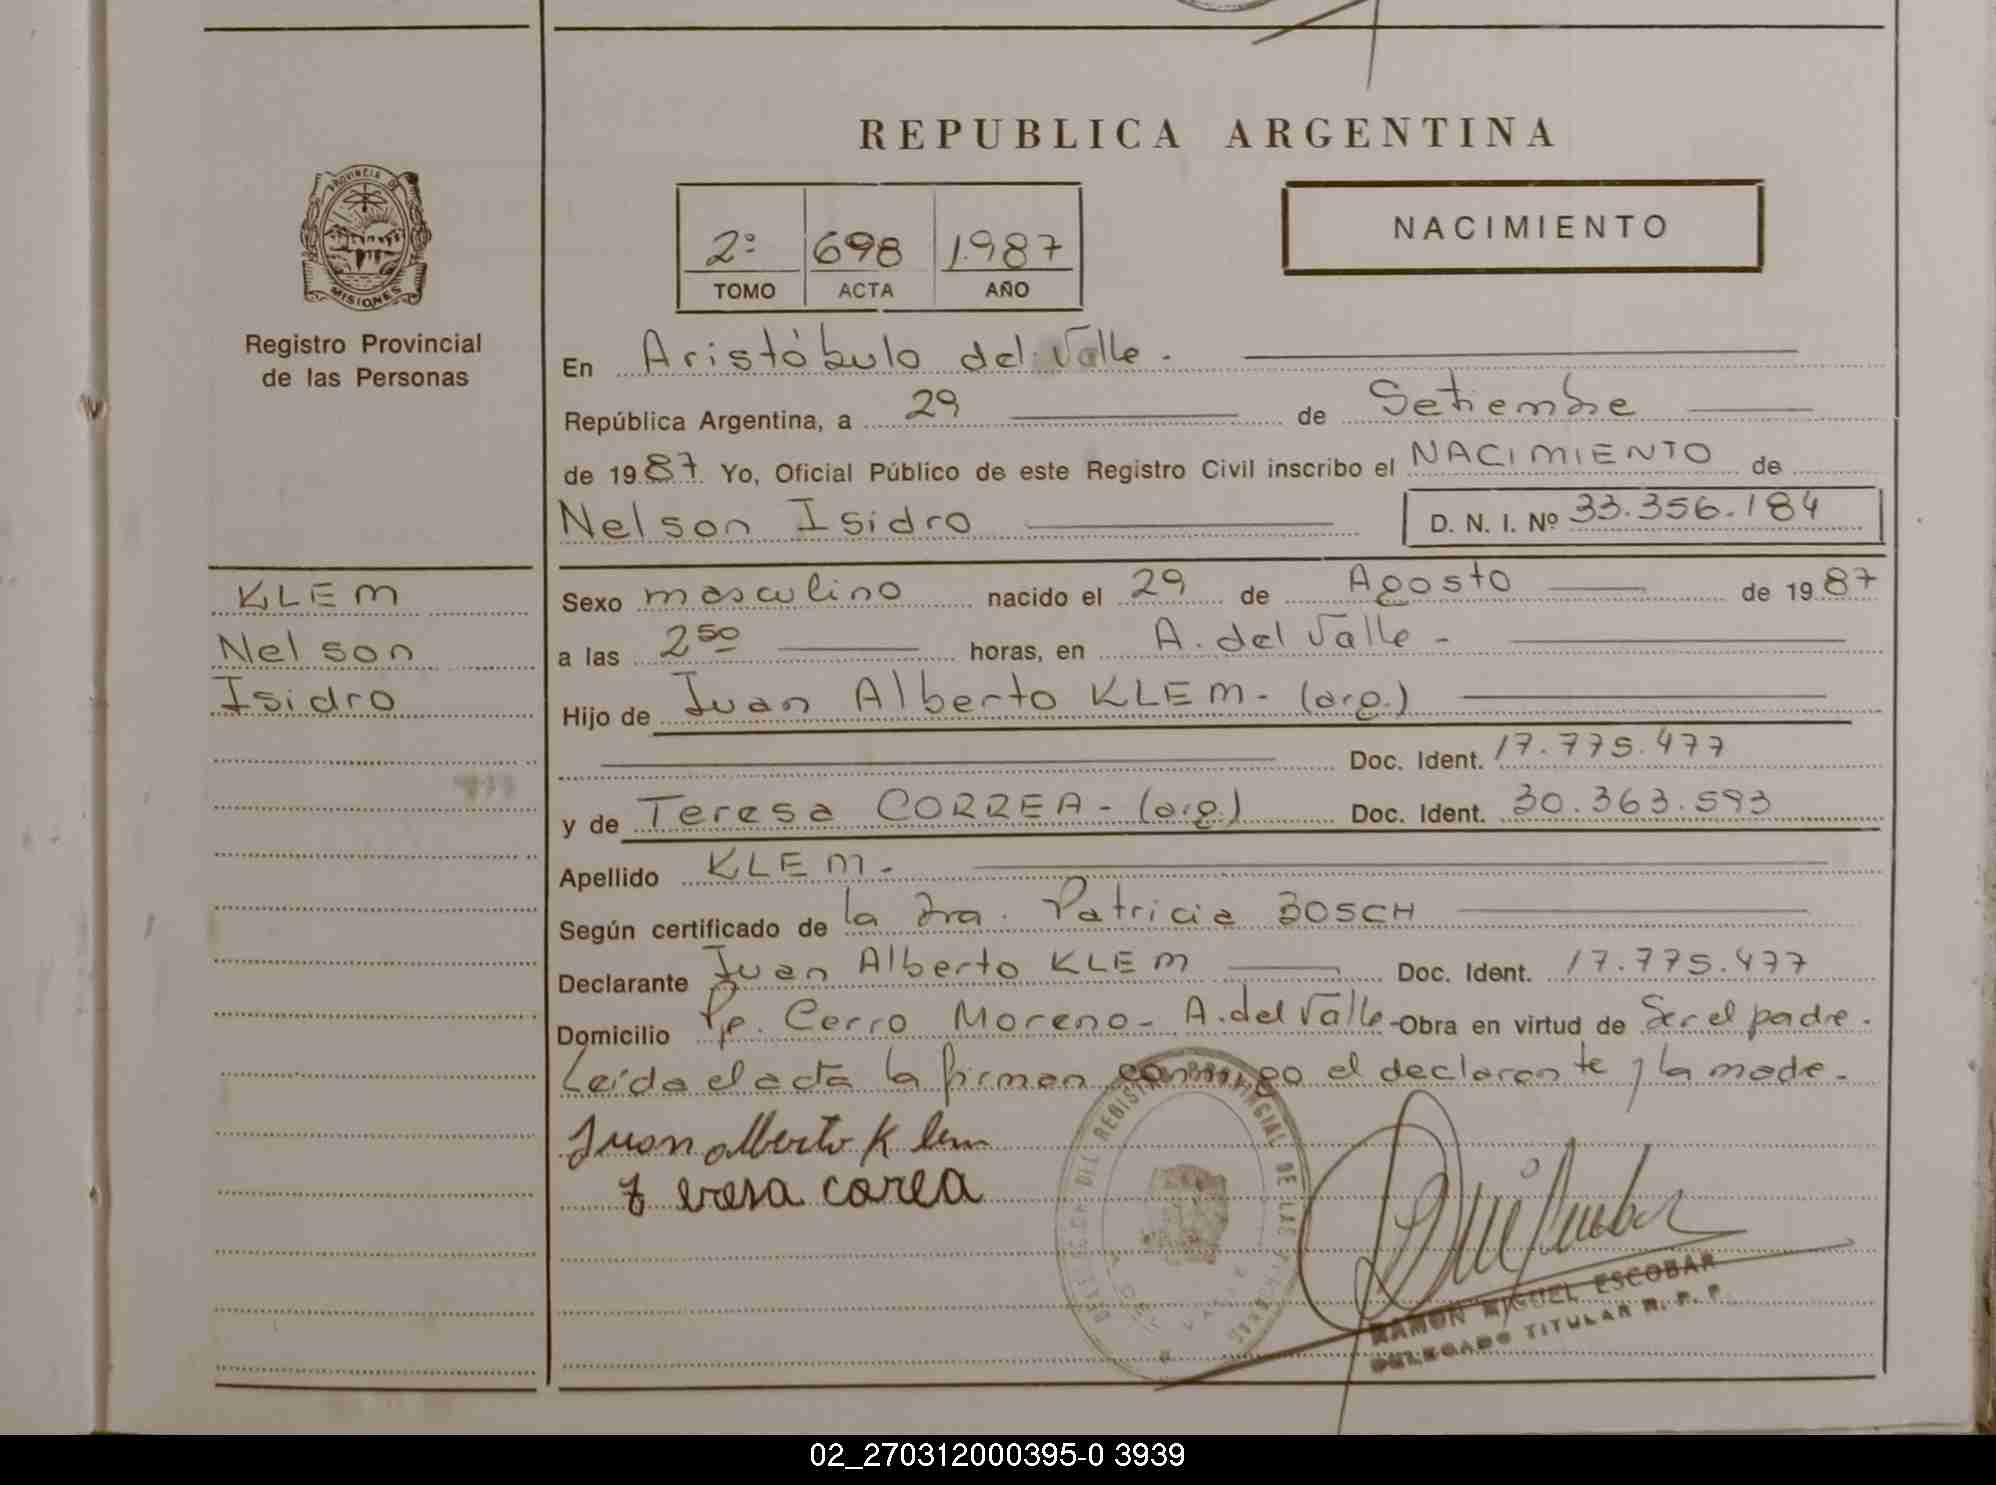 REPUBLICA ARGENTINA
PROVINCIA DE
MISIONES
Registro Provincial
de las Personas
2º 698 1.987
TOMO ACTA AÑO
NACIMIENTO
En Aristóbulo del Valle.
República Argentina, a 29 de Setiembre
de 1987 Yo, Oficial Público de este Registro Civil inscribo el NACIMIENTO de
Nelson Isidro D. N. I. Nº 33.356.184
KLEM
Nelson
Isidro
Sexo masculino nacido el 29 de Agosto de 1987
a las 2 50 horas, en A. del Valle -
Hijo de Juan Alberto KLEM - (arg.)
Doc. Ident. 17.775.477
y de Teresa CORREA - (arg.) Doc. Ident. 30.363.593
Apellido KLEM -
Según certificado de la Dra. Patricia BOSCH
Declarante Juan Alberto KLEM Doc. Ident. 17.775.477
Domicilio Pje. Cerro Moreno - A. del Valle - Obra en virtud de Ser el padre.
Leída el acta la firman conmigo el declarante y la madre.
Juan Alberto Klem
Teresa corea
DEL REGISTRO PROVINCIAL DE LAS PERSONAS
RAMON MIGUEL ESCOBAR
DELEGADO TITULAR R. P. P.
02_270312000395-0 3939